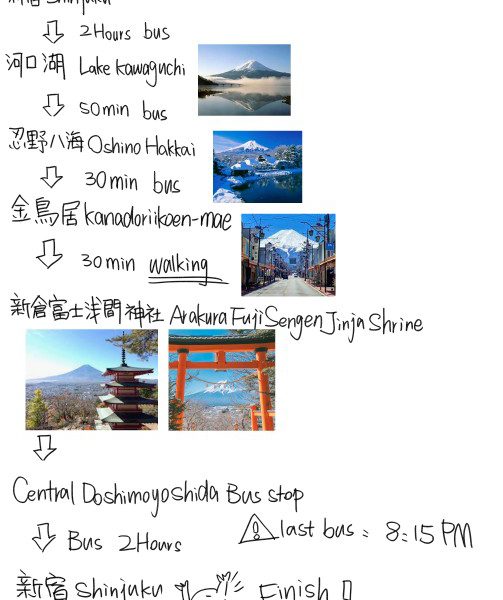 新宿 Shinjuku
2Hours bus
河口湖 Lake kawaguchi
50min bus
忍野八海 Oshino Hakkai
30min bus
金鳥居 kanadoriikoen-mae
30min walking
新倉富士浅間神社 Arakura Fuji Sengen Jinja Shrine
Central Doshimoyoshida Bus stop
⚠ last bus : 8:15 PM
Bus 2Hours
新宿 Shinjuku Finish !!